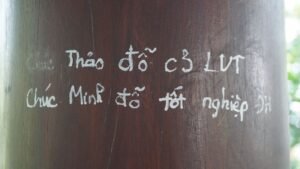 Chúc Thảo đỗ c3 LVT
Chúc Minh đỗ tốt nghiệp ĐH